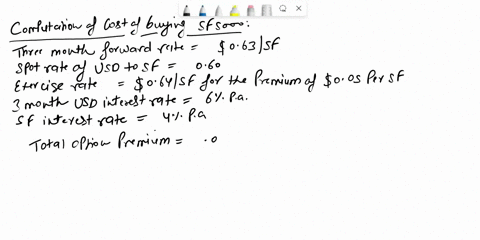 Computation of Cost of buying SF5000:
Three month forward rate = $0.63/SF
Spot rate of USD to SF = 0.60
Exercise rate = $0.64/SF for the Premium of $0.05 Per SF
3 month USD interest rate = 6% p.a.
SF interest rate = 4% P.a
Total option Premium = .0